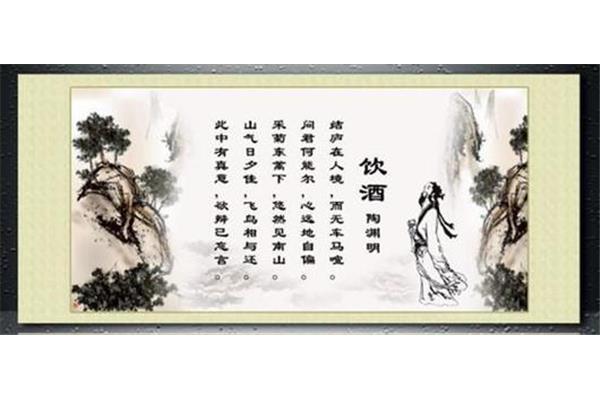 饮酒
陶渊明
结庐在人境，而无车马喧。
问君何能尔，心远地自偏。
采菊东篱下，悠然见南山。
山气日夕佳，飞鸟相与还。
此中有真意，欲辨已忘言。